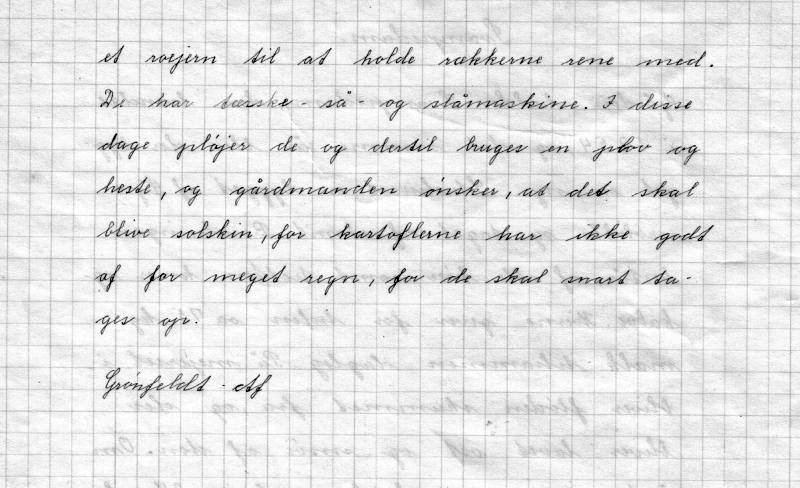 et roejern til at holde rækkerne rene med.
De har tærske - så - og slåmaskine. I disse
dage pløjer de og dertil bruges en plov og
heste, og gårdmanden ønsker, at det skal
blive solskin, for kartoflerne har ikke godt
af for meget regn, for de skal snart ta-
ges op.
Grønfeldt